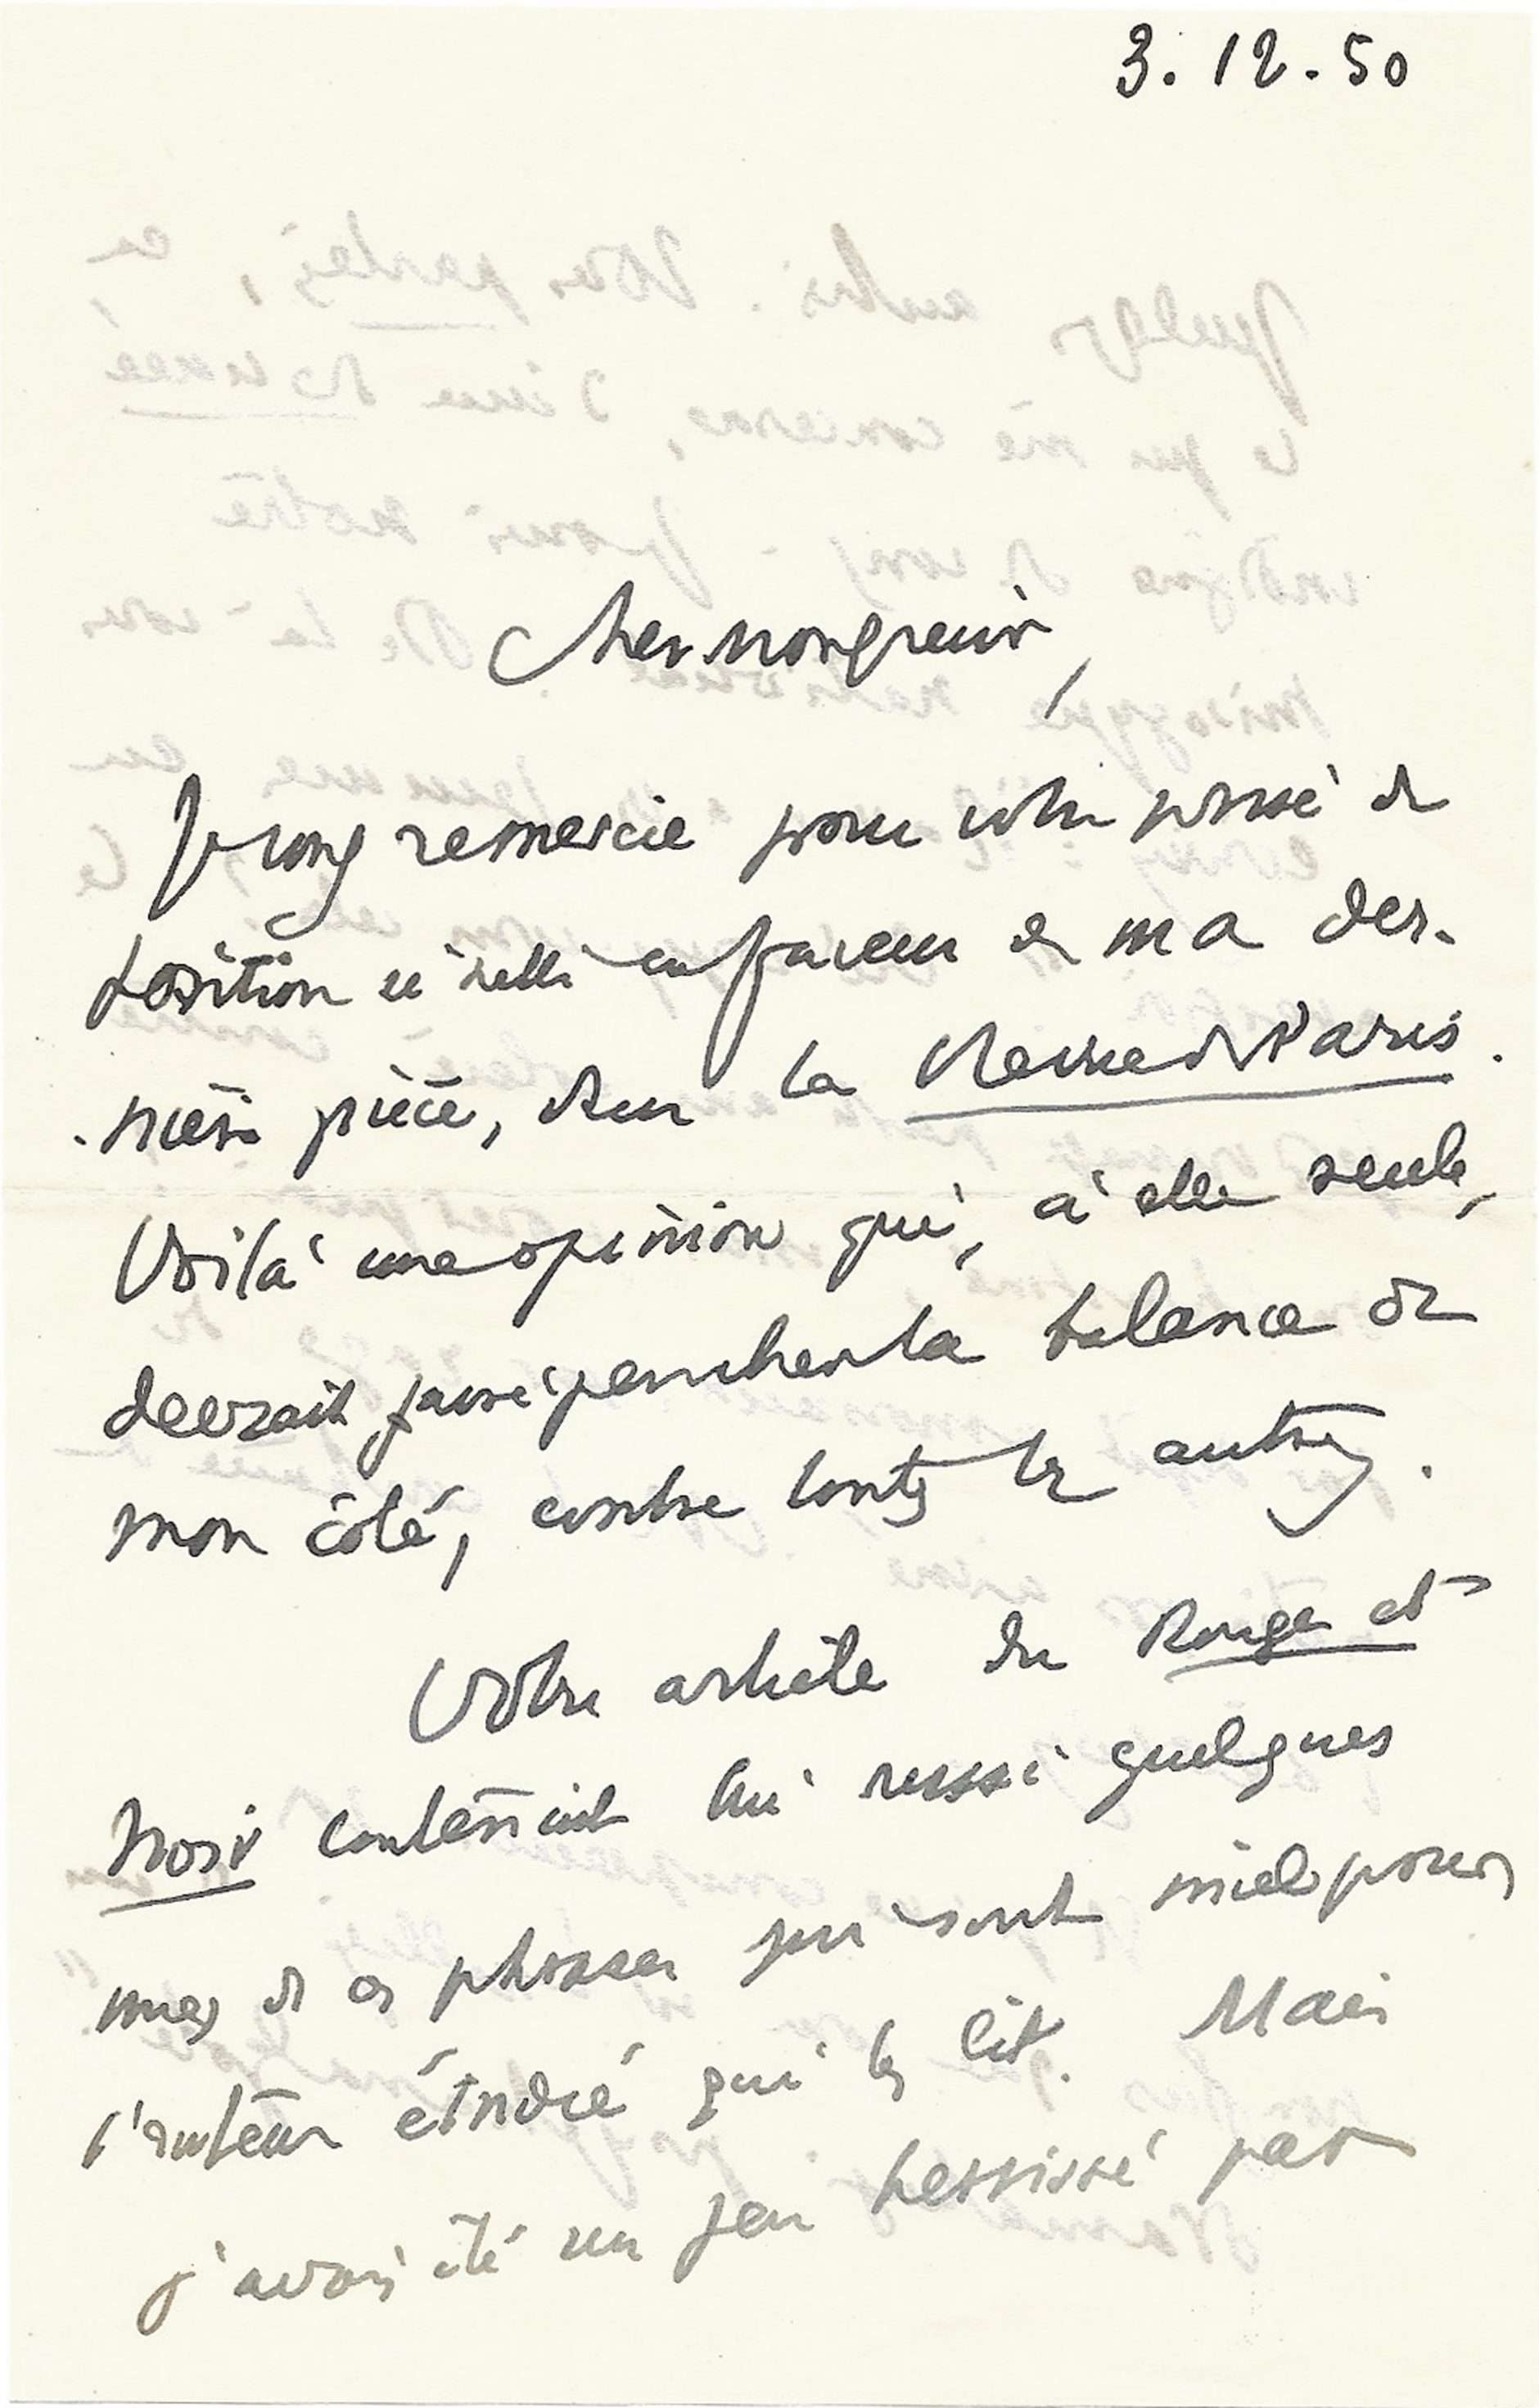 3. 12. 50
Cher Monsieur,
Je vous remercie pour votre prise de
position si nette en faveur de ma der-
-nière pièce, dans la Revue de Paris.
Voilà une opinion qui, à elle seule,
devrait faire pencher la balance de
mon côté, contre toutes les autres.
Votre article du Rouge et
Noir contenait lui aussi quelques
unes de ces phrases qui sont miel pour
l'auteur étudié qui les lit. Mais
j'avais été un peu hérissé par